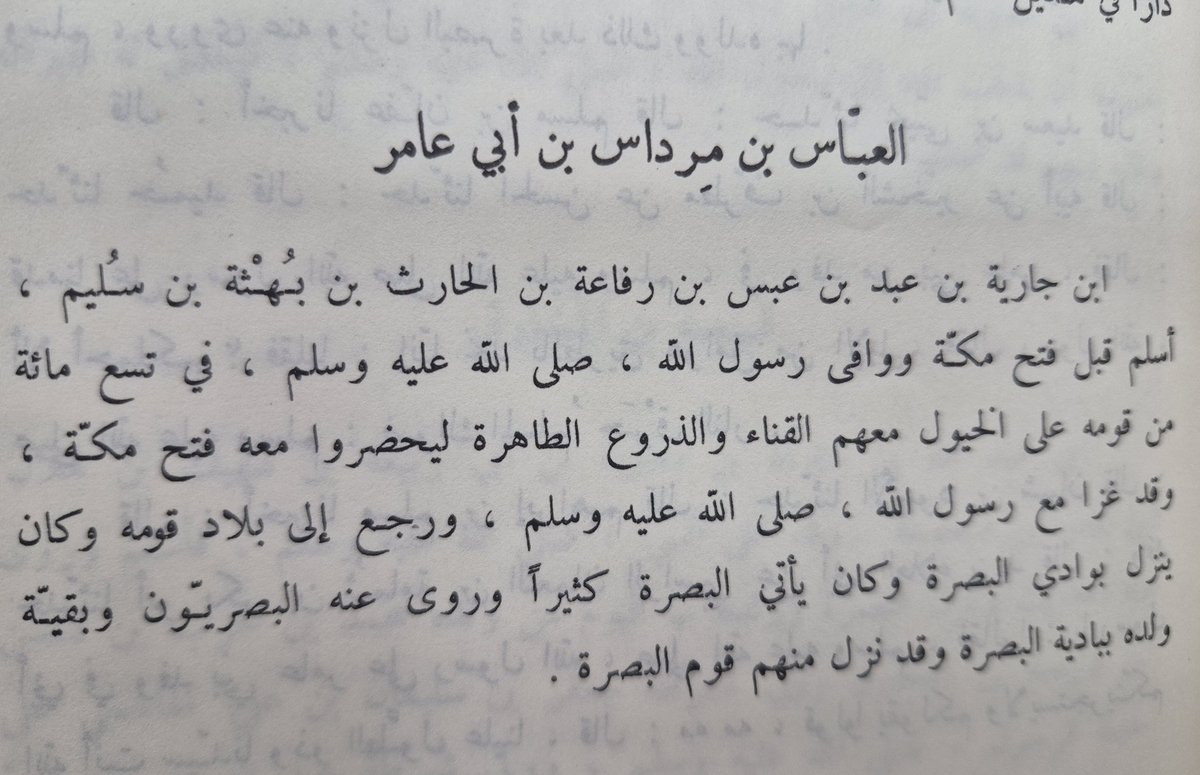 العبّاس بن مِرداس بن أبي عامر
ابن جارية بن عبد بن عبس بن رفاعة بن الحارث بن بُهْثة بن سُليم ،
أسلم قبل فتح مكّة ووافى رسول الله ، صلى الله عليه وسلم ، في تسع مائة
من قومه على الخيول معهم القناء والذروع الطاهرة ليحضروا معه فتح مكّة ،
وقد غزا مع رسول الله ، صلى الله عليه وسلم ، ورجع إلى بلاد قومه وكان
ينزل بوادي البصرة وكان يأتي البصرة كثيراً وروى عنه البصريّون وبقيّة
ولده ببادية البصرة وقد نزل منهم قوم البصرة .